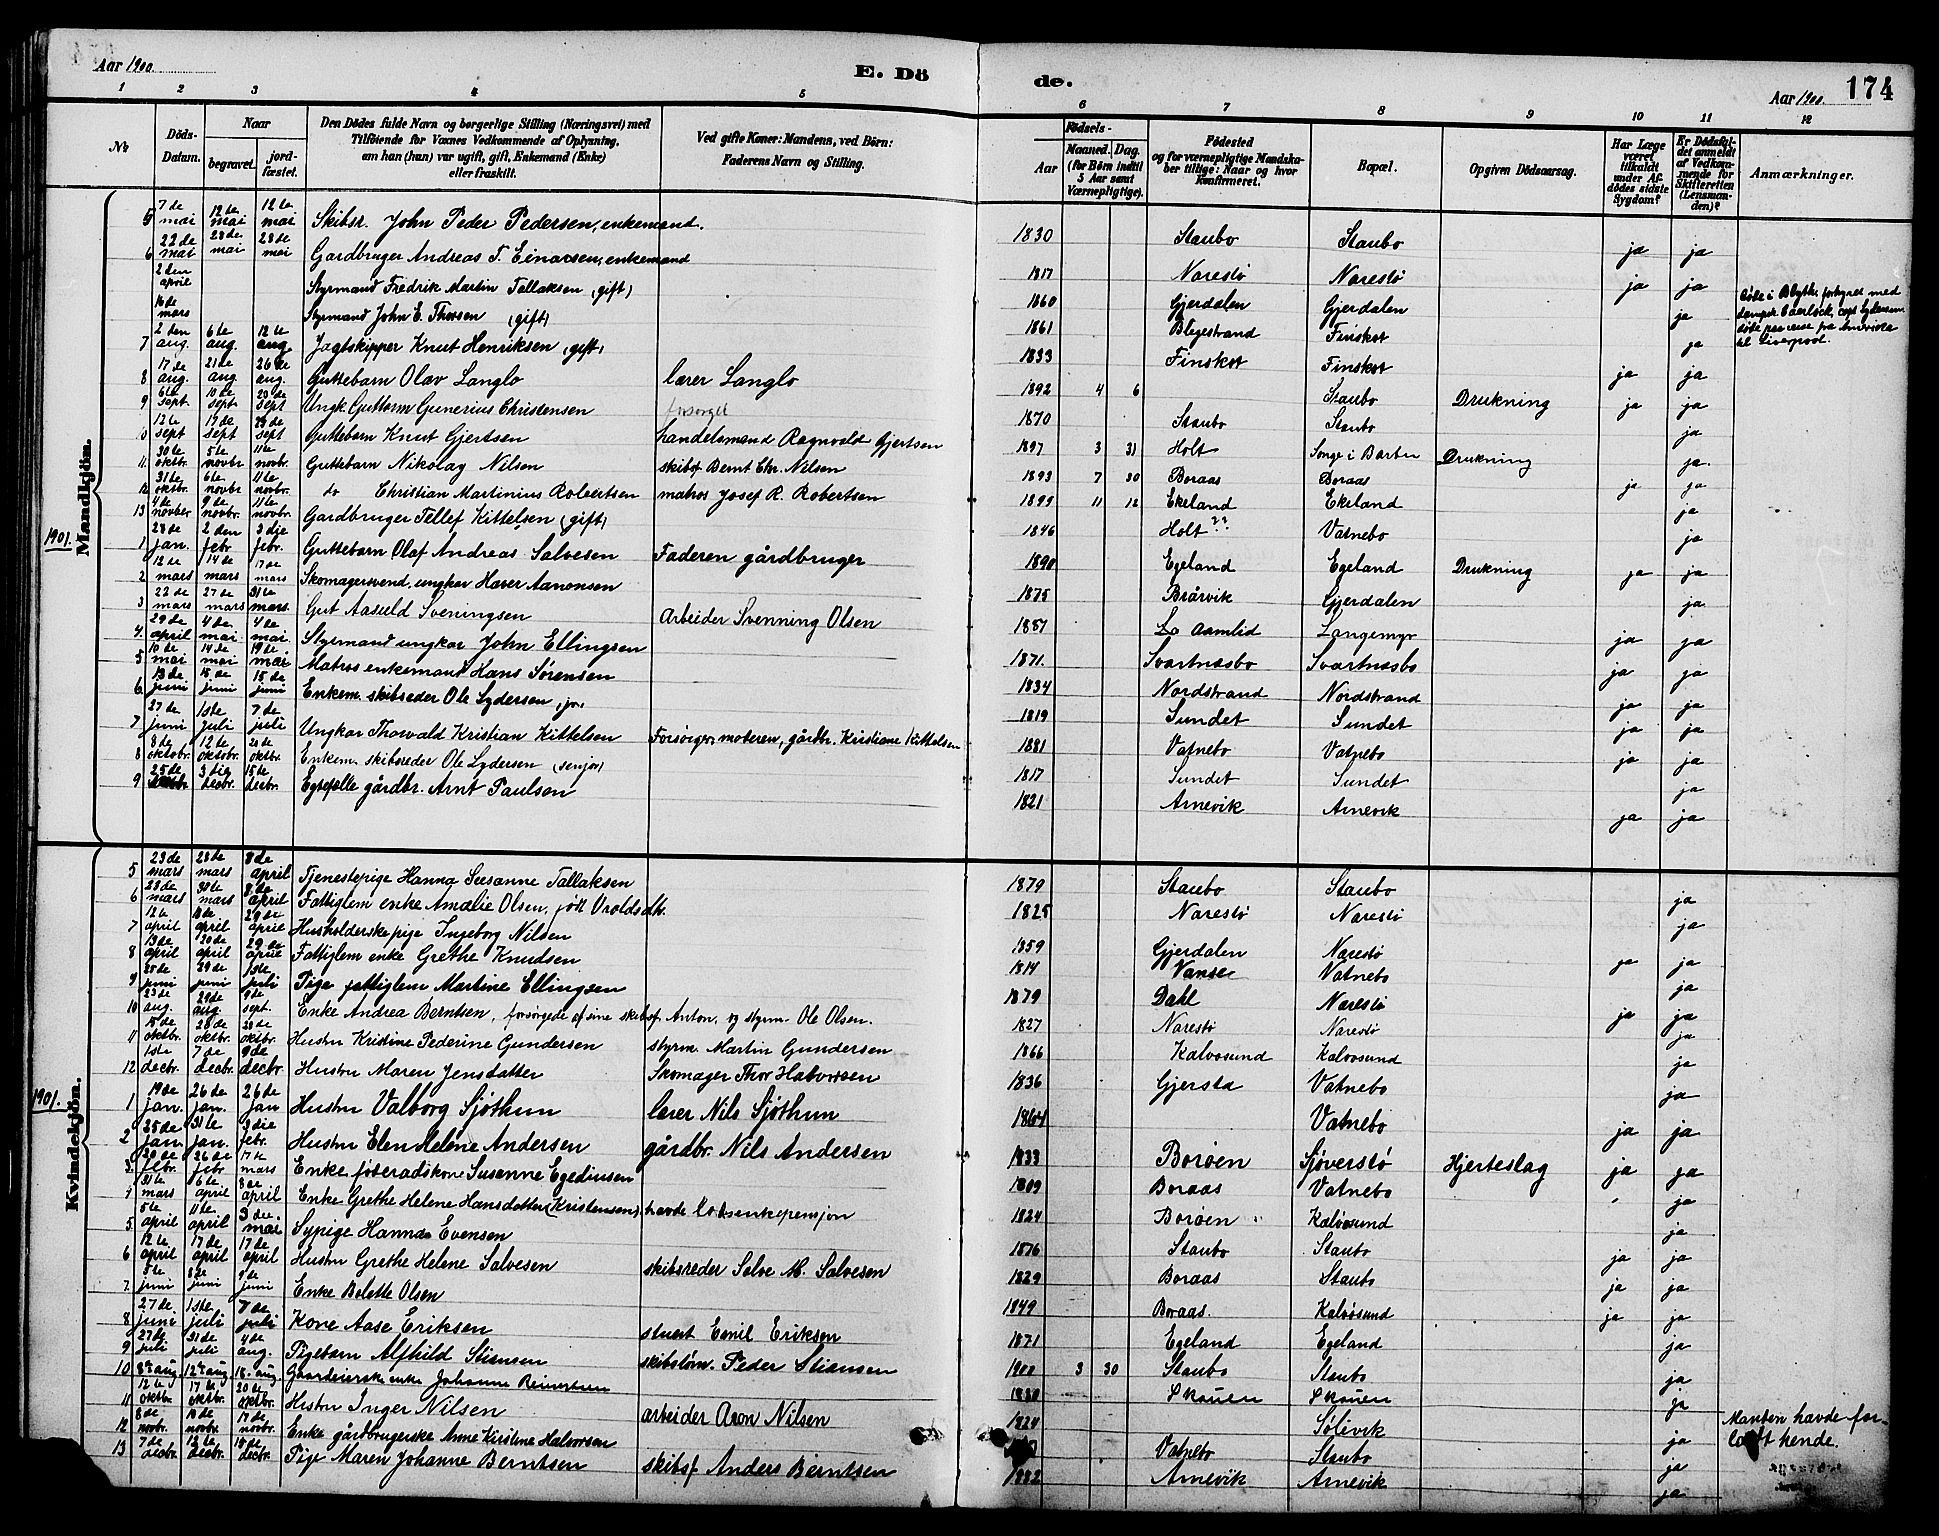 Aar 1900.
E. Dö
de.
Aar 1900.
174
1 2 3 4 5 6 7 8 9 10 11 12
No
Döds-Datum.
Naar
begravet.
jord-fæstet.
Den Dödes fulde Navn og borgerlige Stilling (Næringsvei) med
Tilföiende for Voxnes Vedkommende af Oplysning,
om han (hun) var ugift, gift, Enkemand (Enke)
eller fraskilt.
Ved gifte Koner: Mandens, ved Börn:
Faderens Navn og Stilling.
Födsels-
Aar
Maaned. Dag.
(for Börn indtil
5 Aar samt
Værnepligtige).
Födested
og for værnepligtige Mandska-
ber tillige: Naar og hvor
konfirmeret.
Bopæl.
Opgiven Dödsaarsag.
Har Læge
været
tilkaldt
under Af-
dödes sidste
Sygdom?
Er Dödsfal-
det anmeldt
af Vedkom-
mende for
Skifteretten
(Lensman-
den)?
Anmærkninger.
Mandkjön.
5 7de mai 12te mai 12te mai Skibsr. John Peder Pedersen, enkemand. 1830 Staubo Staubo ja ja
6 22de mai 28de mai 28de mai Gardbruger Andreas T. Einarsen, enkemand 1817 Narestø Narestø ja ja
2den april Styrmand Fredrik Martin Tellaksen (gift) 1860 Gjerdalen Gjerdalen ja
16de mars Styrmand John E. Thorsen (gift) 1861 Finskot ja
til Liverpool.
7 2den aug. 6te aug. 12te aug. Jagtskipper Knut Henriksen (gift) 1833 Finskot Finskot ja ja
8 17de aug. 21de aug 26de aug. Guttebarn Olav Langlo lærer Langlo 1892 4 6 Staubo Drukning ja ja
9 6te sept. 10de sept 20de sept Ungk. Guttorm Gunerius Christensen forsørget 1870 Staubo Staubo ja
10 12te sept 17de sept 29de sept Guttebarn Knut Gjertsen handelsmand Ragnvald Gjertsen 1897 3 31 Holt Songe i Drukning ja.
11. 30te oktbr. 5te novbr 11te novbr. Guttebarn Nikolay Nilsen skibsf Bernt Chr. Nilsen 1893 7 30 Boraas Boraas ja ja
12 31de oktbr. 6te novbr 11te novbr. do Christian Martinius Robertsen matros Josef R. Robertsen 1899 11 12 Ekeland Ekeland ja
13 4de novber 9de novbr. 11te novbr. Gardbruger Tellef Kittelsen (gift) 1846 Holt?? Vatnebo ja
1901.
1 28de jan. 2den febr 3die febr. Guttebarn Olaf Andreas Salvesen Faderen gårdbruger 1890 Egeland Egeland Drukning ja ja
2 12de mars 14de mars 17de mars Skomagersvend, ungkar Haver Aanonsen 1875 Brårvik Gjerdalen ja
3 22de mars 27de mars 31te mars. Gut Aasuld Sveningsen Arbeider Svenning Olsen 1887 Aamlid Langemyr ja ja
4. 29de april 4de mai. 4de mai Styrmand ungkar John Ellingsen 1871. Svartnæsbo Svartnæsbo ja ja
5 10de mai 14de mai 19de mai Matros enkemand Hans Sørensen 1834 Nordstrand Nordstrand ja ja
6. 13de juni 15de juni 15de juni Enkem. skibsreder Ole Lydersen, jr. 1819 Sundet Sundet ja ja
7 27de juni 1ste juli 7de juli Ungkar Thorvald Kristian Kittelsen Forsørger, moderen, gårdbr. Kristiane Kittelsen 1881 Vatnebo Vatnebo ja ja
8 8de oktobr. 12te oktobr. 20de oktbr. Enkem. skibsreder Ole Lydersen (senjor) 1817 Sundet Sundet ja
9 25de 3die decbr. 15de decbr. Egtefælle gårdbr. Arnt Paulson 1821 Arnevik Arnevik ja ja
Kvindekjön.
5 23de mars 28de mars 8de april Tjenestepige Hanna Susanne Tallaksen 1879 Staubo Staubo ja
6 28de mars 30te mars 8de april Fattiglem enke Amalie Olsen, født Oroldsdtr. 1825 Narestø Narestø ja
7 12te april 18de april 29de april Husholderske pige Ingeborg Nilsen 1859 Gjerdalen Narestø ja ja
8 13de april 20de april 29de april Fattiglem enke Grethe Knudsen 1814 Vanse Vatnebo ja
9 25de juni 29de juni 1ste juli Pige fattiglem Martine Ellingsen 1879 Dahl Narestø ja ja
10 23de aug. 29de aug. 9de sept. Enke Andrea Berntsen, forsørgede af sine skibsf. Anton, og styrm. Ole Olsen. 1827 Narestø Narestø ja
11 15de oktbr. 20de oktbr. 28de oktbr. Hustru Kristine Pederine Gundersen styrm. Martin Gundersen 1866 Kalvøsund Kalvøsund ja
12 1ste decbr. 7de decbr. 9de decbr Hustru Maren Jensdatter Skomager Thor Halvorsen 1836 Gjersta Vatnebo ja
1901.
1 19de jan. 26de jan. 26de jan Hustru Valborg Sjøthun lærer Nils Sjøthun 1864 Vatnebo ja ja
2 25de jan. 31te jan. 3die febr. Hustru Elen Helene Andersen gårdbr. Nils Andersen 1833 Borøen Sjøverstø Hjerteslag ja ja
3. 20de febr. 26de febr 17de mars Enke føderadskone Susanne Egediusen 1809 Boraas Vatnebo ja
31te mars 6te april 8de april Enke Grethe Helene Hansdatter (Kristensen) havde lodsenkepensjon 1824 Borøen Kalvøsund ja
5. 5te april 11te april 3die mai Sypige Hanna Evensen 1876 Staubo Staubo ja ja
6 12te april 17de april 17de april Hustru Grethe Helene Salvesen skibsreder Salve M. Salvesen 1829 Boraas Staubo ja ja
7. 5te juni 8de juni 9de juni Enke Belette Olsen 1849 Boraas. Kalvøsund ja ja
8 27de juni 1ste juli 7de juli Kone Aase Eriksen stuert Emil Eriksen 1871 Egeland Egeland ja
9 27de juli 31te juli 4de aug. Pigebarn Alfhild Stiansen skibstøm. Peder Stiansen 1900 3 30 Staubo Staubo ja
10 8de aug. 12te aug 18. aug. Gaardeierske enke Johanne Reinertsen 1830 Skauen Skauen ja
11 12te oktbr. 17de oktbr. 20de oktbr. Hustru Inger Nilsen arbeider Aron Nilsen 1824 Sølevik ja Manden havde for-
ladt hende.
12 8de novbr. 13de novbr. 17de novbr. Enke gårdbrugerske Anne Kirstine Halvorsen Vatnebo Staubo ja
13 7de decbr. 12te decbr. 15de decbr. Pige Maren Johanne Berntsen skibsf Anders Berntsen 1882 Arnevik Arnevik ja